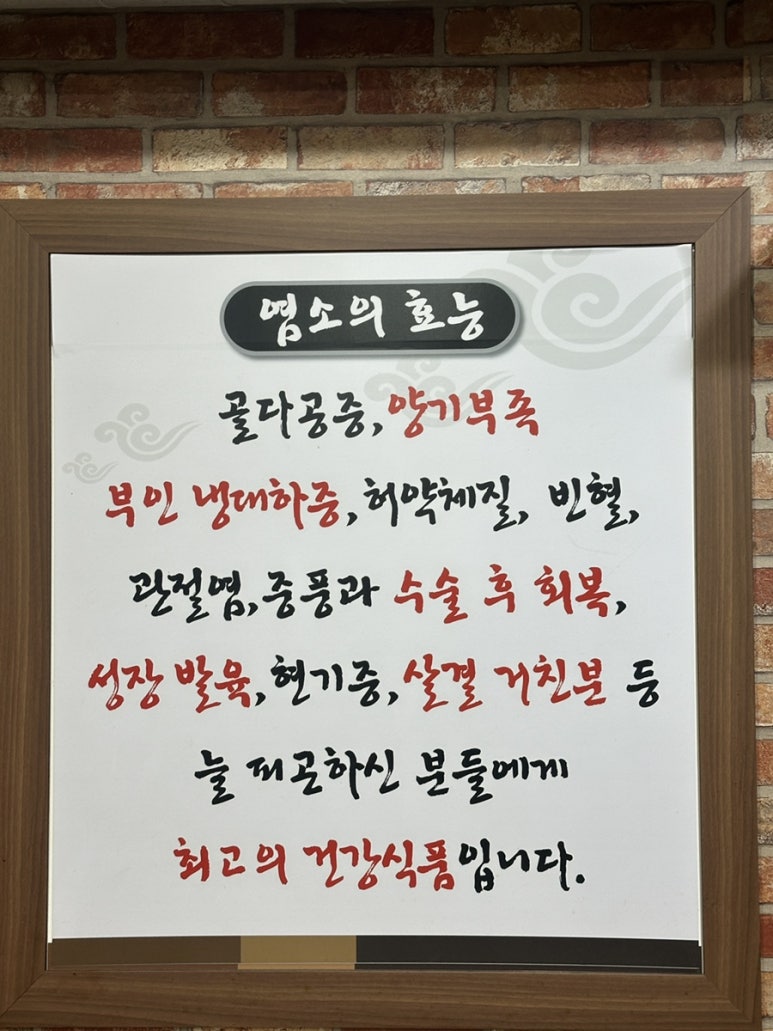 염소의 효능
골다공증, 양기부족
부인 냉대하증, 허약체질, 빈혈,
관절염, 중풍과 수술 후 회복,
성장 발육, 현기증, 살결 거친분 등
늘 피곤하신 분들에게
최고의 건강식품입니다.